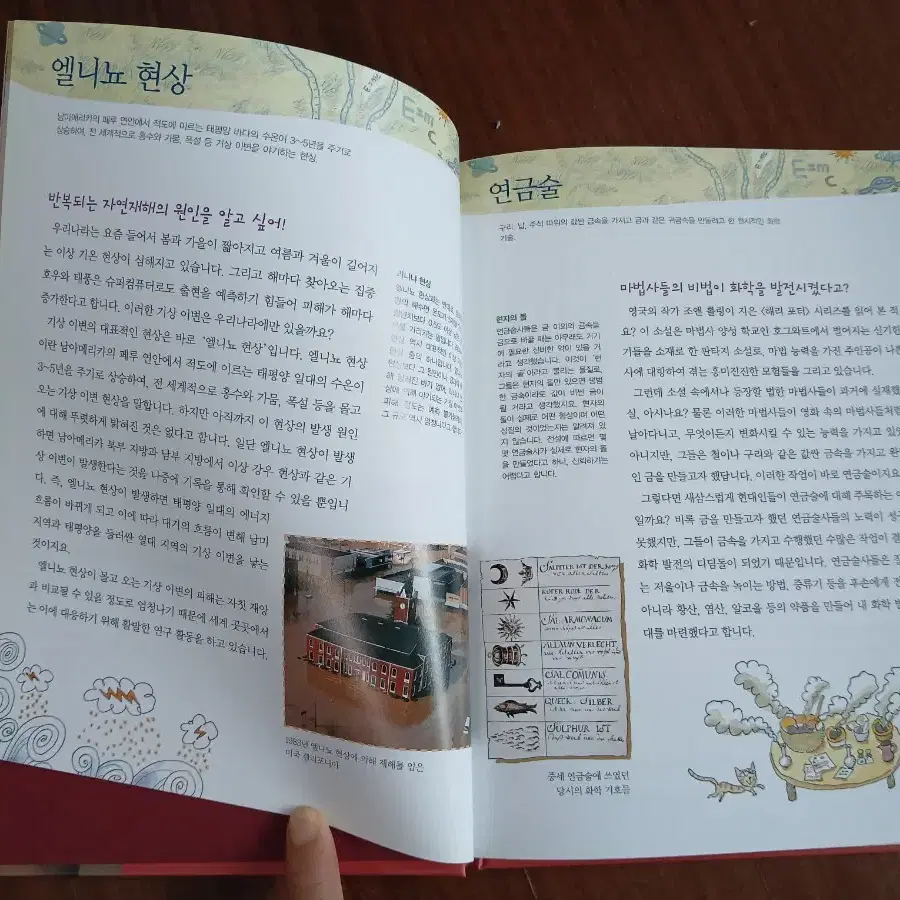 엘니뇨 현상
남아메리카의 페루 연안에서 적도에 이르는 태평양 바다의 수온이 3~5년을 주기로
상승하여, 전 세계적으로 홍수와 가뭄, 폭설 등 기상 이변을 야기하는 현상.
반복되는 자연재해의 원인을 알고 싶어!
우리나라는 요즘 들어서 봄과 가을이 짧아지고 여름과 겨울이 길어지
는 이상 기온 현상이 심해지고 있습니다. 그리고 해마다 찾아오는 집중
호우와 태풍은 슈퍼컴퓨터로도 출현을 예측하기 힘들어 피해가 해마다
증가한다고 합니다. 이러한 기상 이변은 우리나라에만 있을까요?
기상 이변의 대표적인 현상은 바로 '엘니뇨 현상'입니다. 엘니뇨 현상
이란 남아메리카의 페루 연안에서 적도에 이르는 태평양 일대의 수온이
3~5년을 주기로 상승하여, 전 세계적으로 홍수와 가뭄, 폭설 등을 몰고
오는 기상 이변 현상을 말합니다. 하지만 아직까지 이 현상의 발생 원인
에 대해 뚜렷하게 밝혀진 것은 없다고 합니다. 일단 엘니뇨 현상이 발생
하면 남아메리카 북부 지방과 남부 지방에서 이상 강우 현상과 같은 기
상 이변이 발생한다는 것을 나중에 기록을 통해 확인할 수 있을 뿐입니
다. 즉, 엘니뇨 현상이 발생하면 태평양 일대의 에너지
흐름이 바뀌게 되고 이에 따라 대기의 흐름이 변해 남미
지역과 태평양을 둘러싼 열대 지역의 기상 이변을 낳는
것이지요.
엘니뇨 현상이 몰고 오는 기상 이변의 피해는 자칫 재앙
과 비교될 수 있을 정도로 엄청나기 때문에 세계 곳곳에서
는 이에 대응하기 위해 활발한 연구 활동을 하고 있습니다.
라니냐 현상
1983년 엘니뇨 현상에 의해 재해를 입은
미국 캘리포니아
연금술
구리, 납, 주석 따위의 값싼 금속을 가지고 금과 같은 귀금속을 만들려고 한 원시적인 화학
기술.
현자의 돌
연금술사들은 금 이외의 금속을
금으로 바꿀 때는 아무래도 거기
에 필요한 신비한 약이 있을 거
라고 생각했습니다. 이것이 '현
자의 돌'이라고 불리는 물질로,
그들은 현자의 돌만 있으면 평범
한 금속이라도 값이 비싼 금이
될 거라고 생각했지요. 현자의
돌이 실제로 어떤 형상이며 어떤
성질의 것이었는지는 알려져 있
지 않습니다. 전설에 따르면 몇
몇 연금술사가 실제로 현자의 돌
을 만들었다고 하나, 신뢰하기는
어렵다고 합니다.
마법사들의 비법이 화학을 발전시켰다고?
영국의 작가 조앤 롤링이 지은 〈해리 포터〉 시리즈를 읽어 본 적
요? 이 소설은 마법사 양성 학교인 호그와트에서 벌어지는 신기한
기들을 소재로 한 판타지 소설로, 마법 능력을 가진 주인공이 나쁜
사에 대항하여 겪는 흥미진진한 모험들을 그리고 있습니다.
그런데 소설 속에서나 등장할 법한 마법사들이 과거에 실재했
실, 아시나요? 물론 이러한 마법사들이 영화 속의 마법사들처럼
날아다니고, 무엇이든지 변화시킬 수 있는 능력을 가지고 있었
아니지만, 그들은 철이나 구리와 같은 값싼 금속을 가지고 완
인 금을 만들고자 했답니다. 이러한 작업이 바로 연금술이지요
그렇다면 새삼스럽게 현대인들이 연금술에 대해 주목하는 이
일까요? 비록 금을 만들고자 했던 연금술사들의 노력이 성
못했지만, 그들이 금속을 가지고 수행했던 수많은 작업이 결
화학 발전의 디딤돌이 되었기 때문입니다. 연금술사들은 조
는 저울이나 금속을 녹이는 방법, 증류기 등을 후손에게 전
아니라 황산, 염산, 알코올 등의 약품을 만들어 내 화학 발
대를 마련했다고 합니다.
SALPITER IST DER
KUPFER
SAL ARMONIACUM
ALLAUN VERLECHT
SAL COMUNIS
QUECK SILBER
SULPHUR IST
중세 연금술에 쓰였던
당시의 화학 기호들